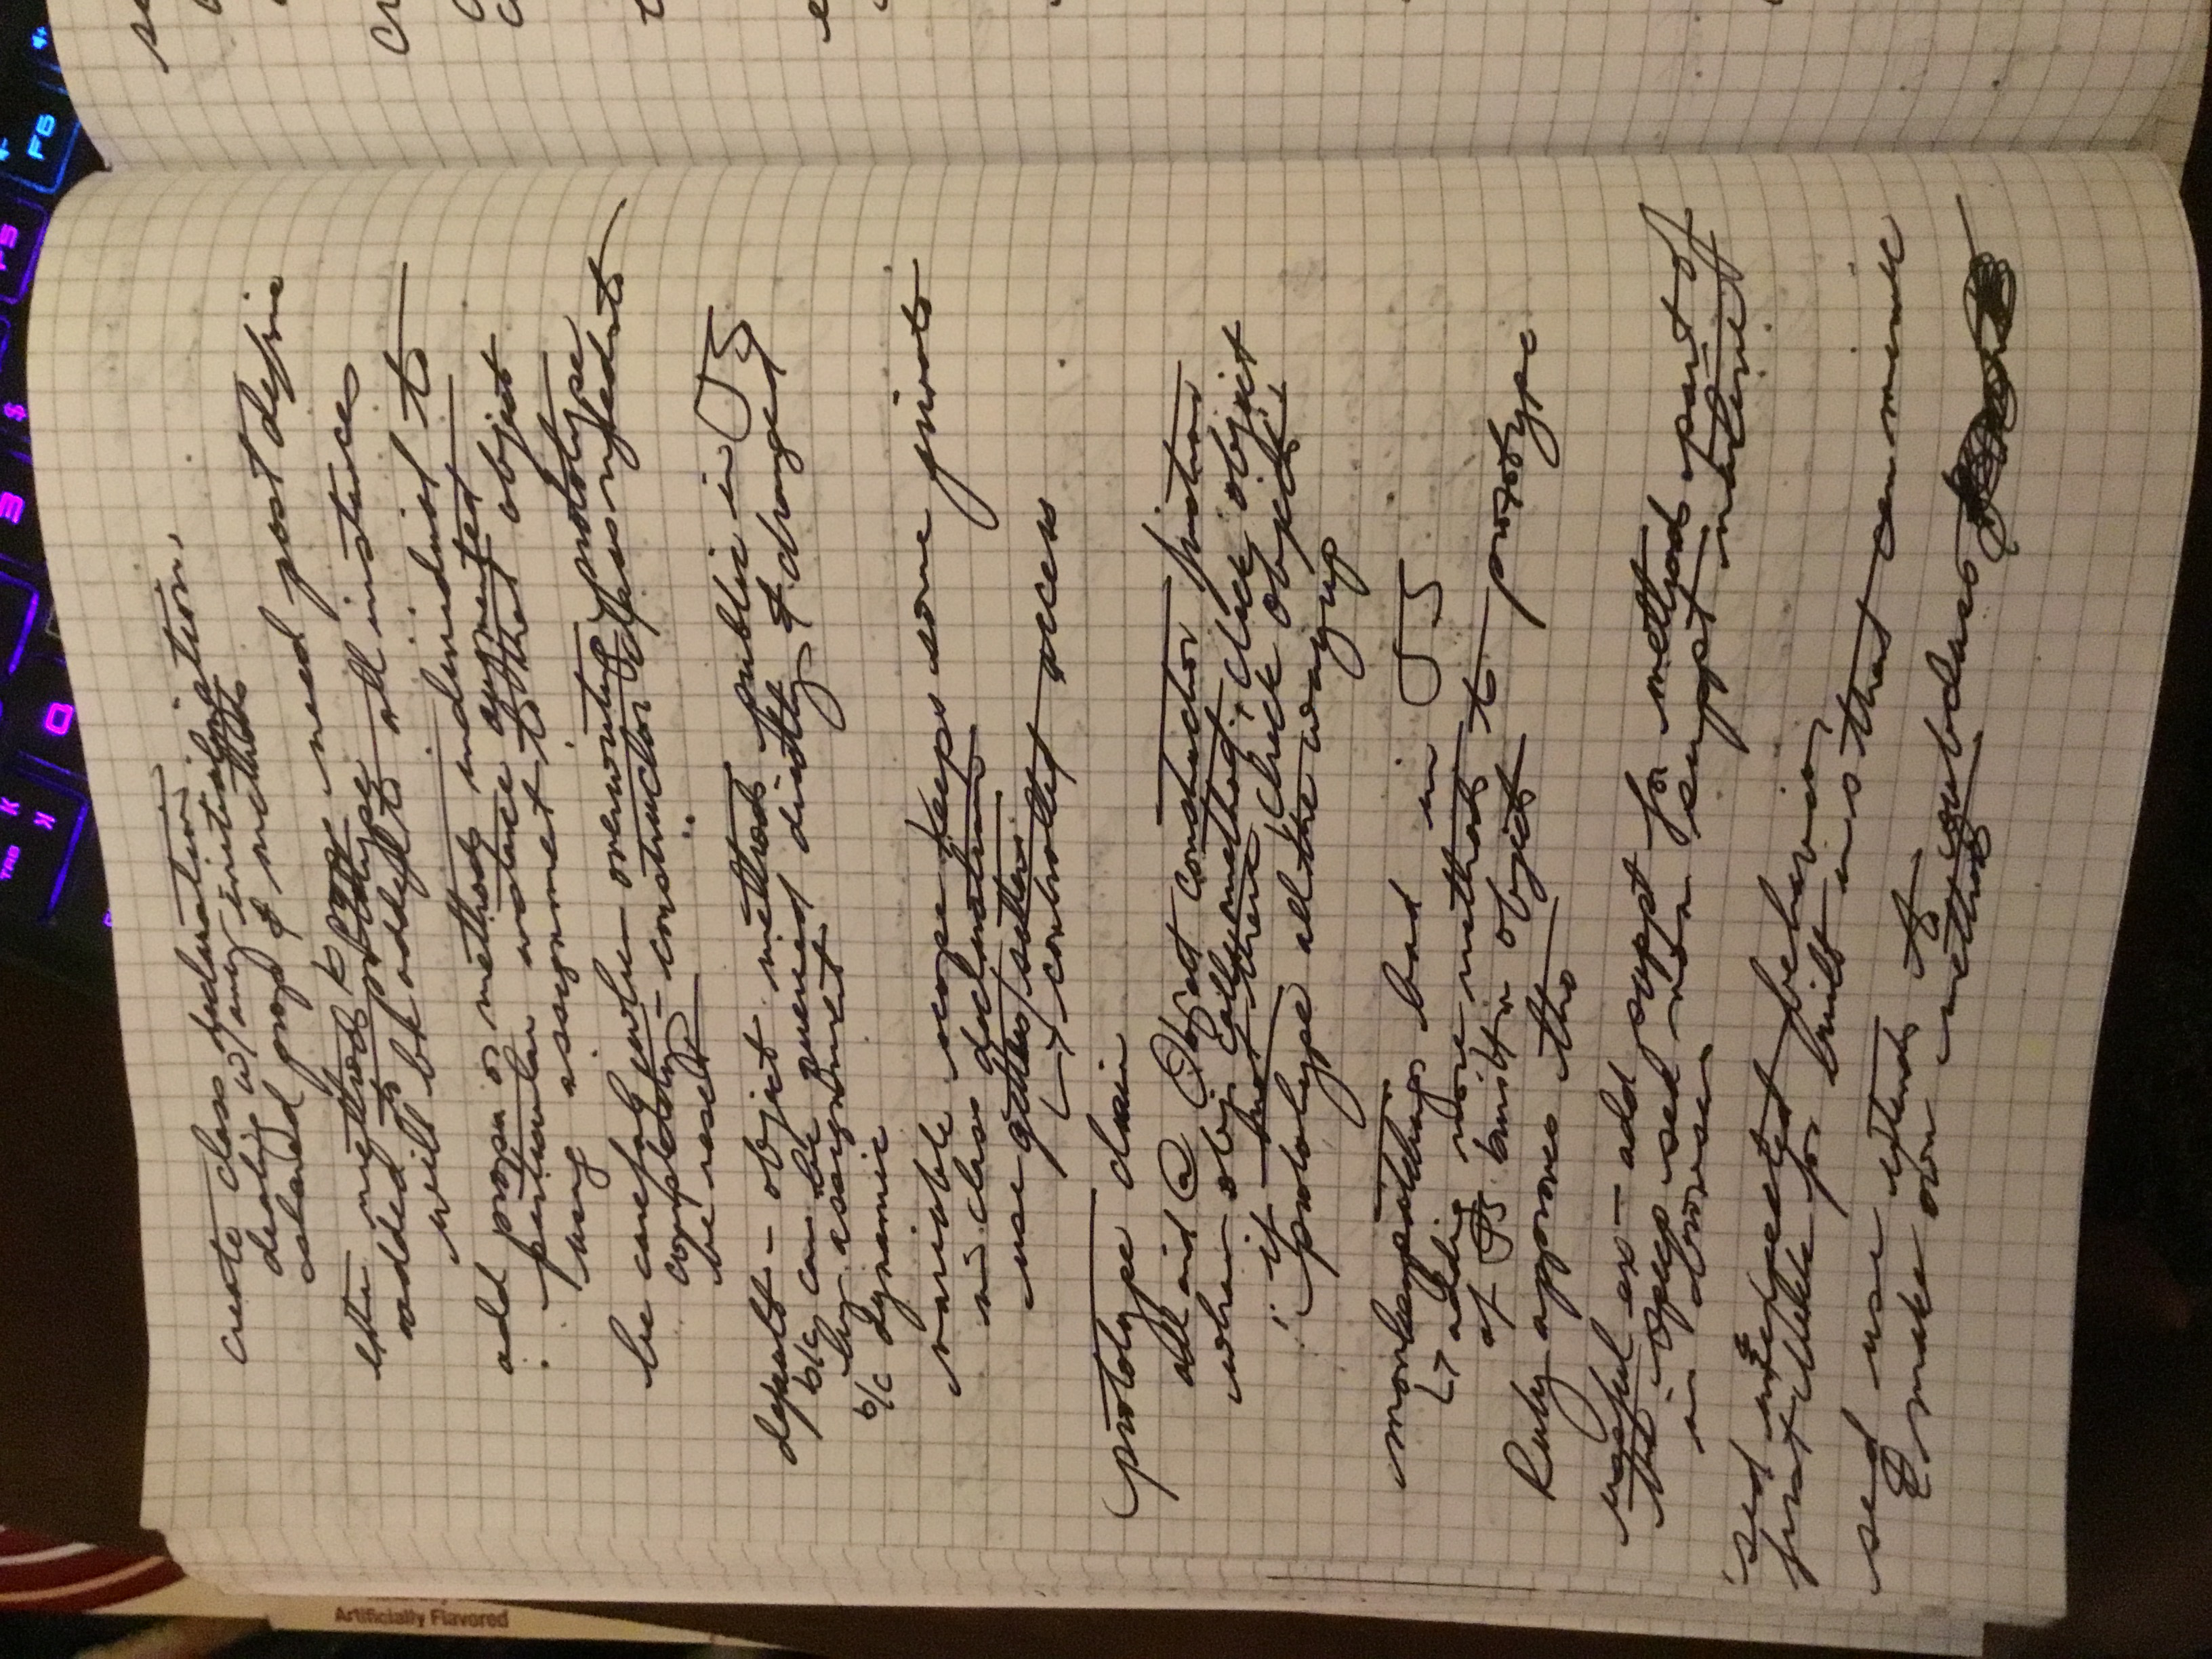 TAB
K
Q
3
$
F5
F6
Artificially Flavored
create class declaration
dealing w/ any initialization,
shared prop & methods
methods & props need post define
added to prototype
will be added to all instances
add props or methods individual to
particular instance augmented
using assignment to that object
be careful when overwriting prototype
completely - constructor class needs to
be reset
default - object methods public in JS
b/c can be queried directly & changed
by assignment
b/c dynamic
variable scope keeps some private
in class declaration
use getters/setters
↳ controlled access
prototype chain
all end @ Object constructor function
when obj calls method, check object
if not there, check object's
prototype all the way up
monkeypatching bad in JS
↳ adding more methods to prototype
of JS built in objects
Ruby approves tho
useful ex - add suppt for methods part of
the spec non suppt native
in browser
unexpected behavior
first check for built ins that can mimic
use extends to subclass
& make own methods